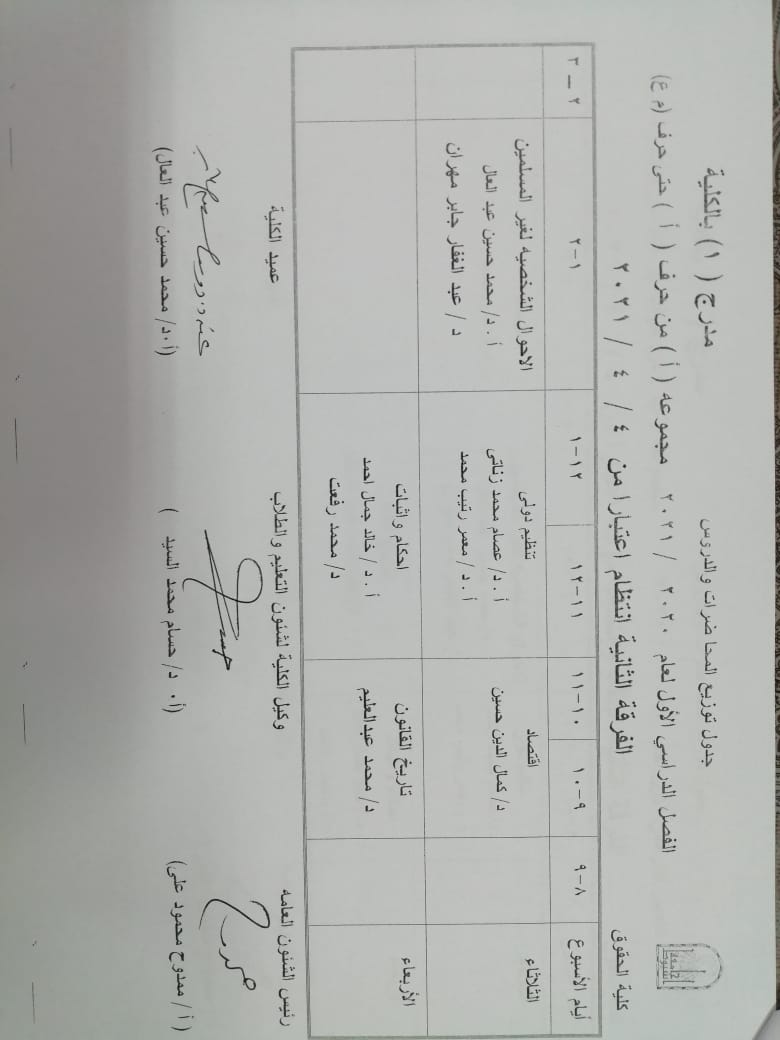 جامعة أسيوط
كلية الحقوق
جدول توزيع المحاضرات والدروس
مدرج ( ١ ) بالكلية
الفصل الدراسي الأول لعام ٢٠٢٠ / ٢٠٢١ مجموعه ( أ ) من حرف ( أ ) حتى حرف ( م ع )
الفرقة الثانية انتظام اعتبارا من ٤ / ٤ / ٢٠٢١
أيام الأسبوع ٨-٩ ٩-١٠ ١٠-١١ ١١-١٢ ١٢-١ ١-٢ ٢ – ٣
الثلاثاء
اقتصاد
د/ كمال الدين حسين
تنظيم دولى
أ . د/ عصام محمد زناتى
أ . د / معمر رتيب محمد
الاحوال الشخصيه لغير المسلمين
أ . د/ محمد حسين عبد العال
د / عبد الغفار جابر مهران
الأربعاء
تاريخ القانون
د/ محمد عبدالعليم
احكام واثبات
أ . د / خالد جمال احمد
د/ محمد رفعت
رئيس الشئون العامه
وكيل الكلية لشئون التعليم والطلاب
عميد الكلية
( أ / ممدوح محمود على)
(أ٠ د/ حسام محمد السيد )
(أ٠د/ محمد حسين عبد العال)